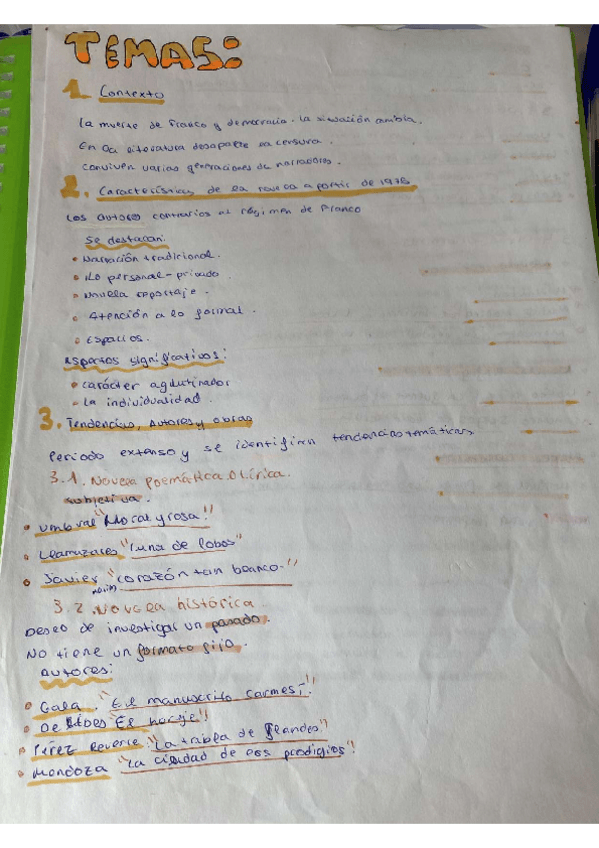 TEMAS:
1. Contexto
La muerte de Franco y democracia. La situación cambia.
En la literatura desaparece la censura.
Conviven varias generaciones de narradores.
2. Características de la novela a partir de 1975
Los autores contrarios al régimen de Franco
Se destacan:
• Narración tradicional.
• Lo personal-privado.
• Novela reportaje.
• Atención a lo formal.
• Espacios.
Aspectos significativos:
• carácter aglutinador
• La individualidad.
3. Tendencias, autores y obras
Periodo extenso y se identifican tendencias temáticas
3.1. Novela poemática o lírica.
subjetiva.
• Umbral "Mortal y rosa"
• Llamazares "Luna de lobos"
• Javier "corazón tan blanco."
Marías
3.2. Novela histórica.
Deseo de investigar un pasado.
No tiene un formato fijo.
Autores:
• Gala. "El manuscrito carmesí"
• Delibes "El hereje"
• Pérez Reverte: "La tabla de Flandes"
• Mendoza "La ciudad de los prodigios"